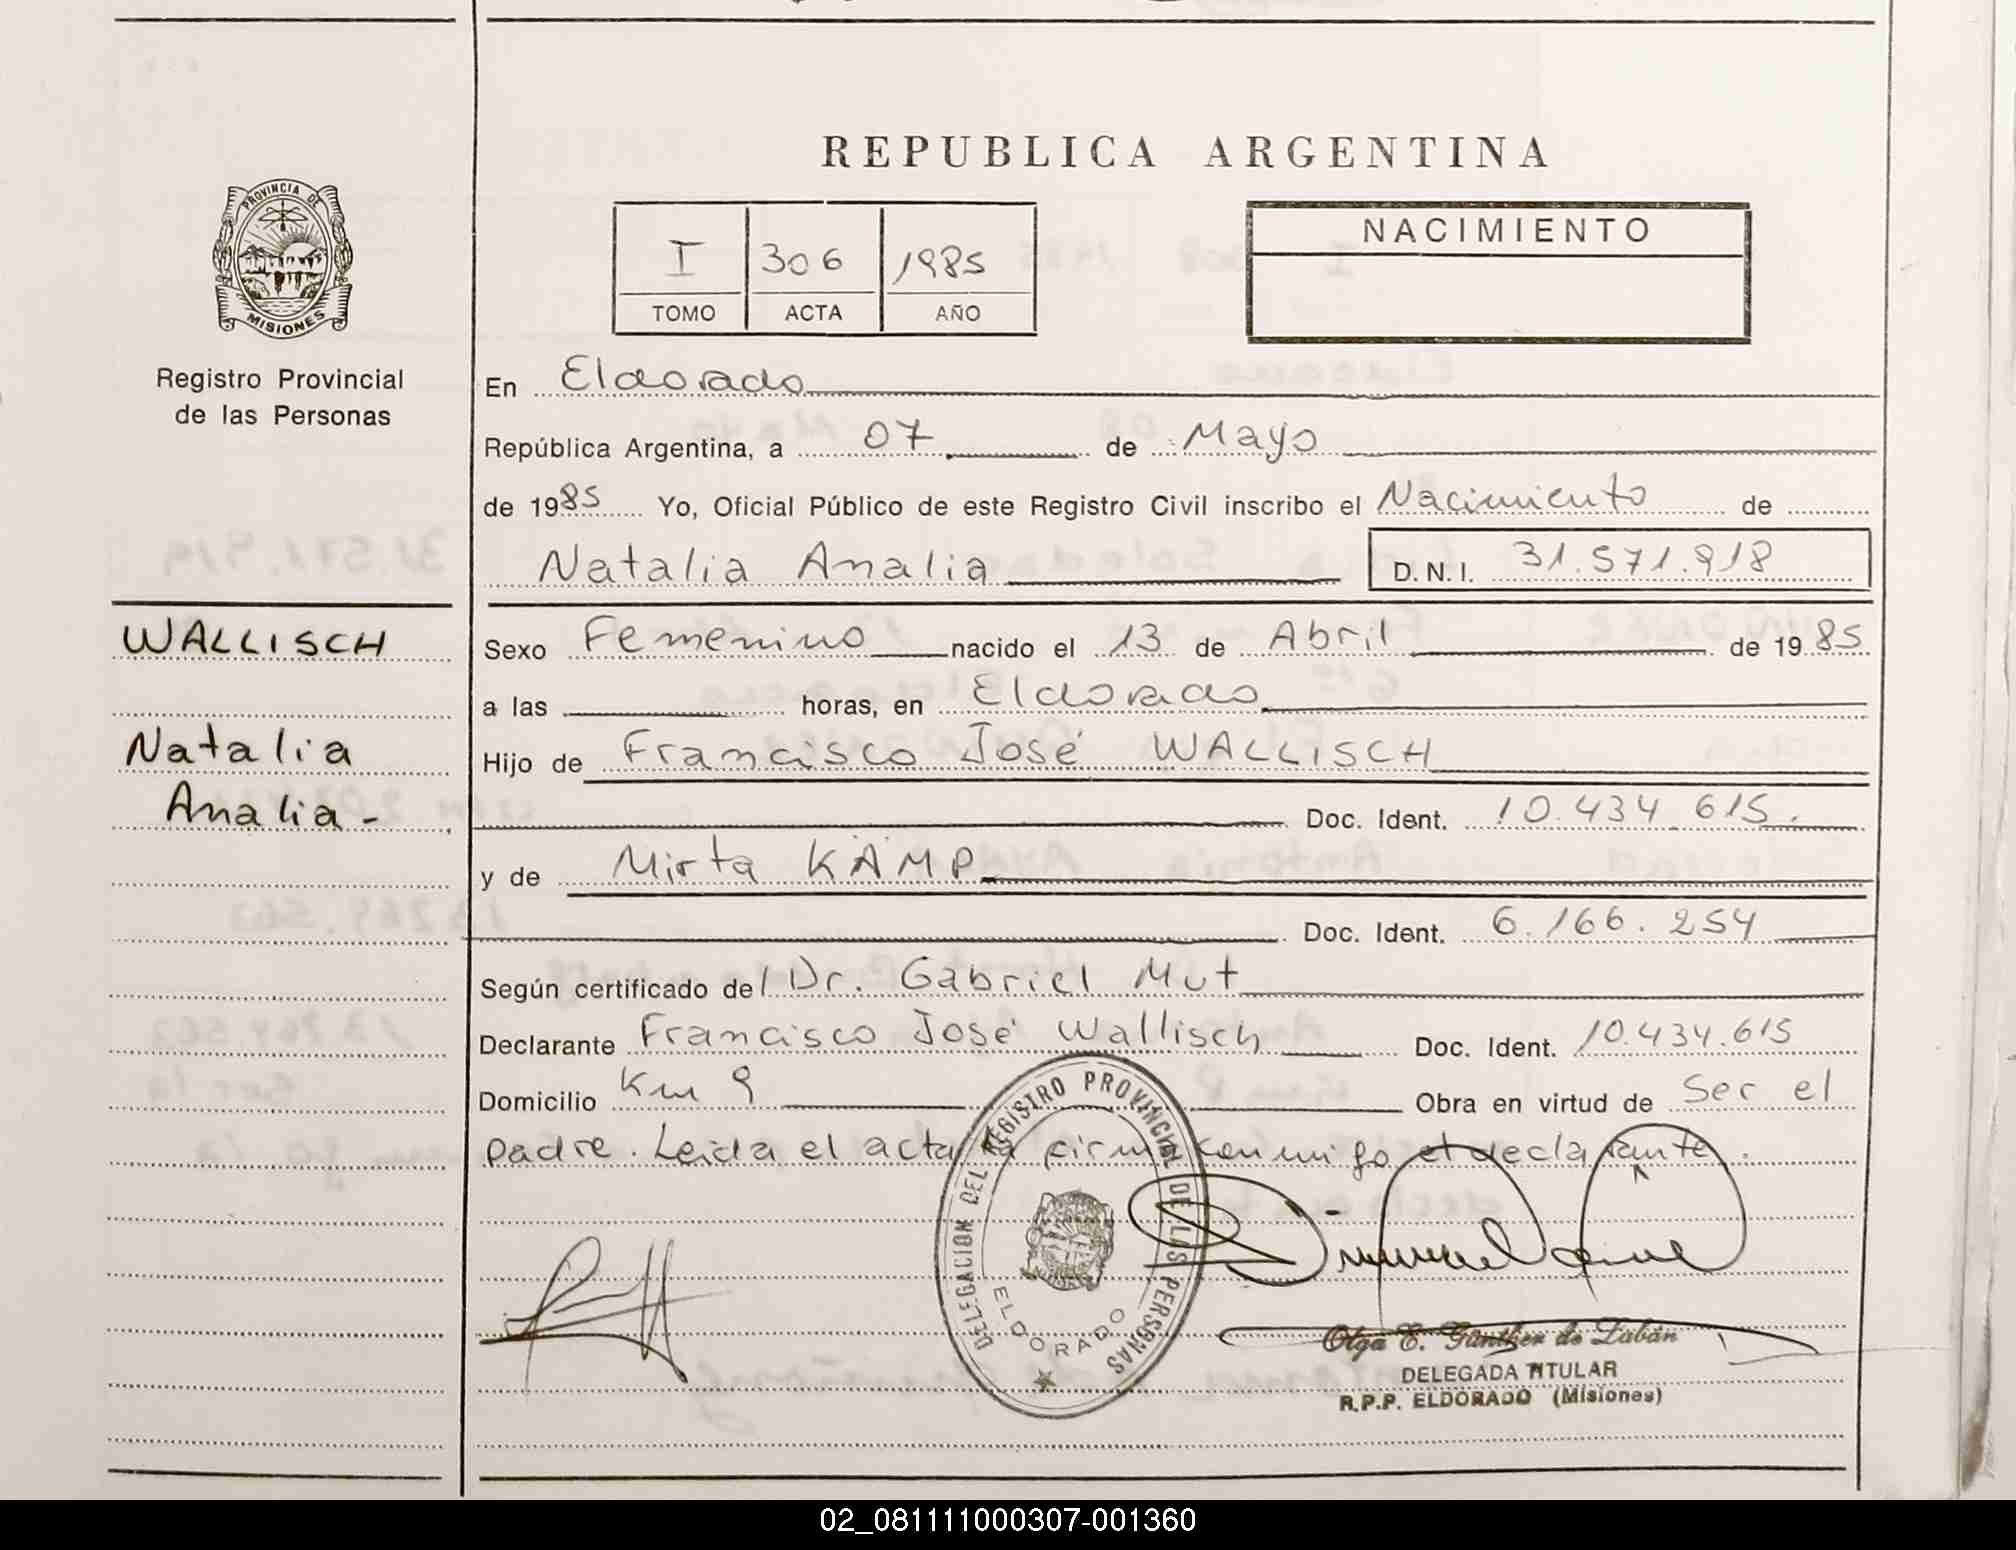 REPUBLICA ARGENTINA
PROVINCIA DE
MISIONES
Registro Provincial
de las Personas
I 306 1985
TOMO ACTA AÑO
NACIMIENTO
En Eldorado
República Argentina, a 07 de Mayo
de 1985 Yo, Oficial Público de este Registro Civil inscribo el Nacimiento de
Natalia Analia D.N.I. 31.571.918
WALLISCH
Natalia
Analia-
Sexo Femenino nacido el 13 de Abril de 1985
a las horas, en Eldorado
Hijo de Francisco José WALLISCH
Doc. Ident. 10.434.615.
y de Mirta KAMP
Doc. Ident. 6.166.254
Según certificado del Dr. Gabriel Mut
Declarante Francisco José Wallisch Doc. Ident. 10.434.615
Domicilio Km 9 Obra en virtud de Ser el
padre. Leida el acta la firma conmigo el declarante.
DELEGACION DEL REGISTRO PROVINCIAL DE LAS PERSONAS
ELDORADO
Olga E. Günther de Labán
DELEGADA TITULAR
R.P.P. ELDORADO (Misiones)
02_081111000307-001360